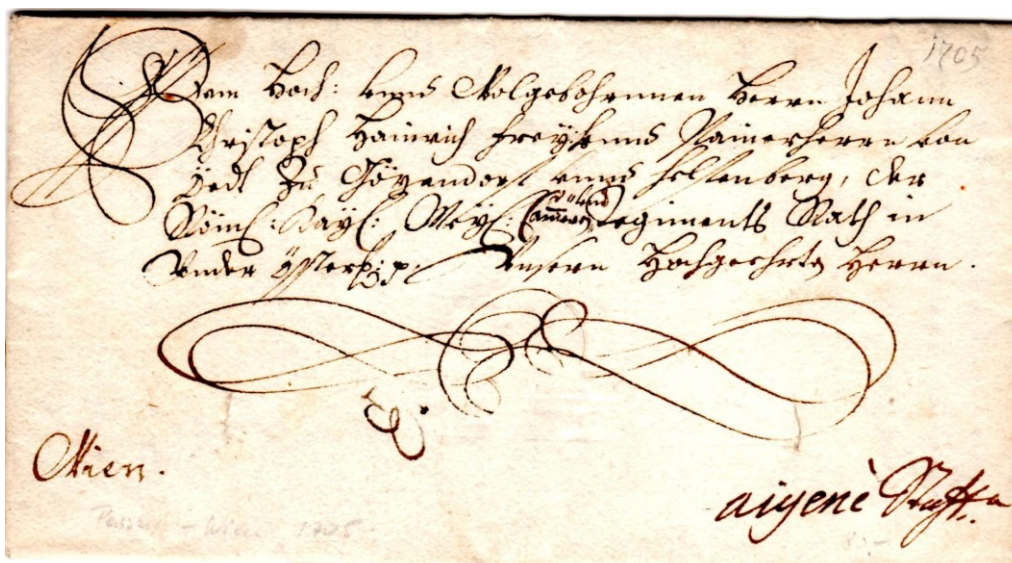 1705
Dem Hoch: vnnd Wolgebohrnnen Herrn Johann
Christoph Hainrich Frey: vnnd Pannerherrn von
Ödt zu Gözendorf vnnd Helfenberg, der
Röm: Kay: May: Cammer vnd Regiments Rath in
Vnder Össterr: p: p: Vnsern Hochgeehrten Herrn.
Wien.
aigene Staff:
Passau – Wien 1705